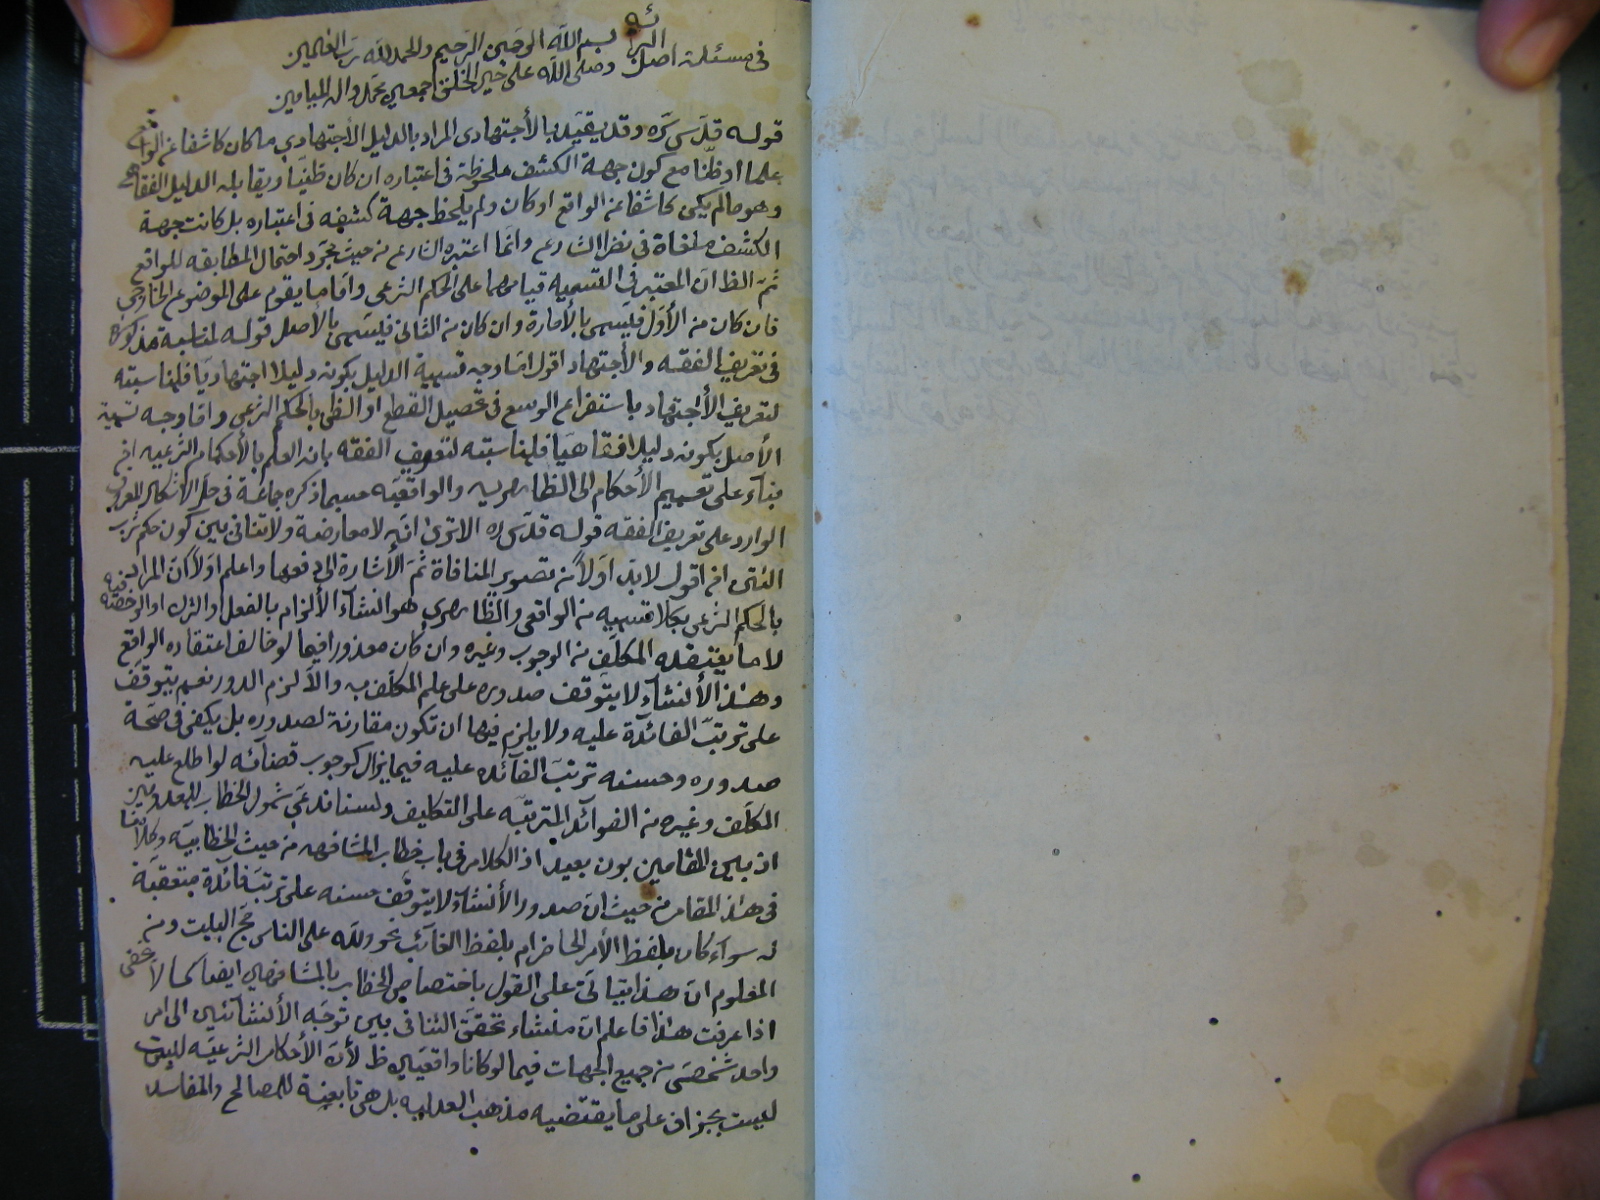 في مسئلة اصل البرائه بسم الله الرحمن الرحيم والحمد لله رب العالمين
وصلى الله على خير الخلق اجمعين محمد واله الميامين
قوله قدس سره وقد يقيدن بالأجتهادى المراد بالدليل الأجتهادي ما كان كاشفا عن الواقع
علما او ظنا مع كون جهة الكشف ملحوظة في اعتباره ان كان ظنيا ويقابله الدليل الفقاهي
وهو ما لم يكن كاشفا عن الواقع او كان ولم يلحظ جهة كشفه في اعتباره بل كانت جهة
الكشف ملغاة في نظر الشارع وانما اعتبره الشارع من حيث مجرد احتمال المطابقه للواقع
ثم الظ ان المعتبر في التسميه قيامهما على الحكم الشرعى واما ما يقوم على الموضوع الخارجي
فان كان من الأول فليسمى بالأمارة وان كان من الثاني فليسمى بالأصل قوله لمناسبة مذكورة
في تعريف الفقه والأجتهاد اقول اما وجه تسمية الدليل بكونه دليلا اجتهاديا فلمناسبته
لتعريف الأجتهاد باستفراغ الوسع في تحصيل القطع او الظن بالحكم الشرعي واما وجه تسمية
الأصل بكونه دليلا فقاهيا فلمناسبته لتعريف الفقه بانه العلم بالأحكام الشرعيه الخ
بناء على تعميم الأحكام الى الظاهريه والواقعيه حسبما ذكره جماعة في حل الأشكال المعروف
الوارد على تعريف الفقه قوله قدس سره الا ترى انه لا معارضة ولا تنافى بين كون حكم شرب
التتن الخ اقول لابد اولا من تصوير المنافاة ثم الأشارة الى دفعها واعلم اولا ان المراد
بالحكم الشرعى بكلا قسميه من الواقعى والظاهري هو انشاء الألزام بالفعل او الترك او الرخصة فيه
لا ما يعتقده المكلف من الوجوب وغيره وان كان معذورا فيما لو خالف اعتقاده الواقع
وهذا الأنشاء لا يتوقف صدوره على علم المكلف به والا لزم الدور نعم يتوقف
على ترتب الفائدة عليه ولا يلزم فيها ان تكون مقارنة لصدوره بل يكفى في صحة
صدوره وحسنه ترتب الفائده عليه فيما يزال كوجوب قضائه لو اطلع عليه
المكلف وغيره من الفوائد المترتبه على التكليف ولسنا ندعى شمول الخطاب للمعدومين
اذ بين المقامين بون بعيد اذ الكلام في باب خطاب المشافهه من حيث الخطابيه وكلامنا
في هذا المقام من حيث ان صدور الأنشاء لا يتوقف حسنه على ترتب فائدة متعقبة
له سواء كان بلفظ الأمر الحاضر ام بلفظ الغائب نحو ولله على الناس حج البيت ومن
المعلوم ان هذا يتاتى على القول باختصاص الخطاب بالمشافهين ايضا كما لا يخفى
اذا عرفت هذا فاعلم ان منشاء تحقق التنافى بين توجه الأنشائين الى امر
واحد شخصى من جميع الجهات فيما لو كانا واقعيين ظ لأن الأحكام الشرعيه ليست
ليست بجزاف على ما يقتضيه مذهب العدليه بل هى تابعة للمصالح والمفاسد